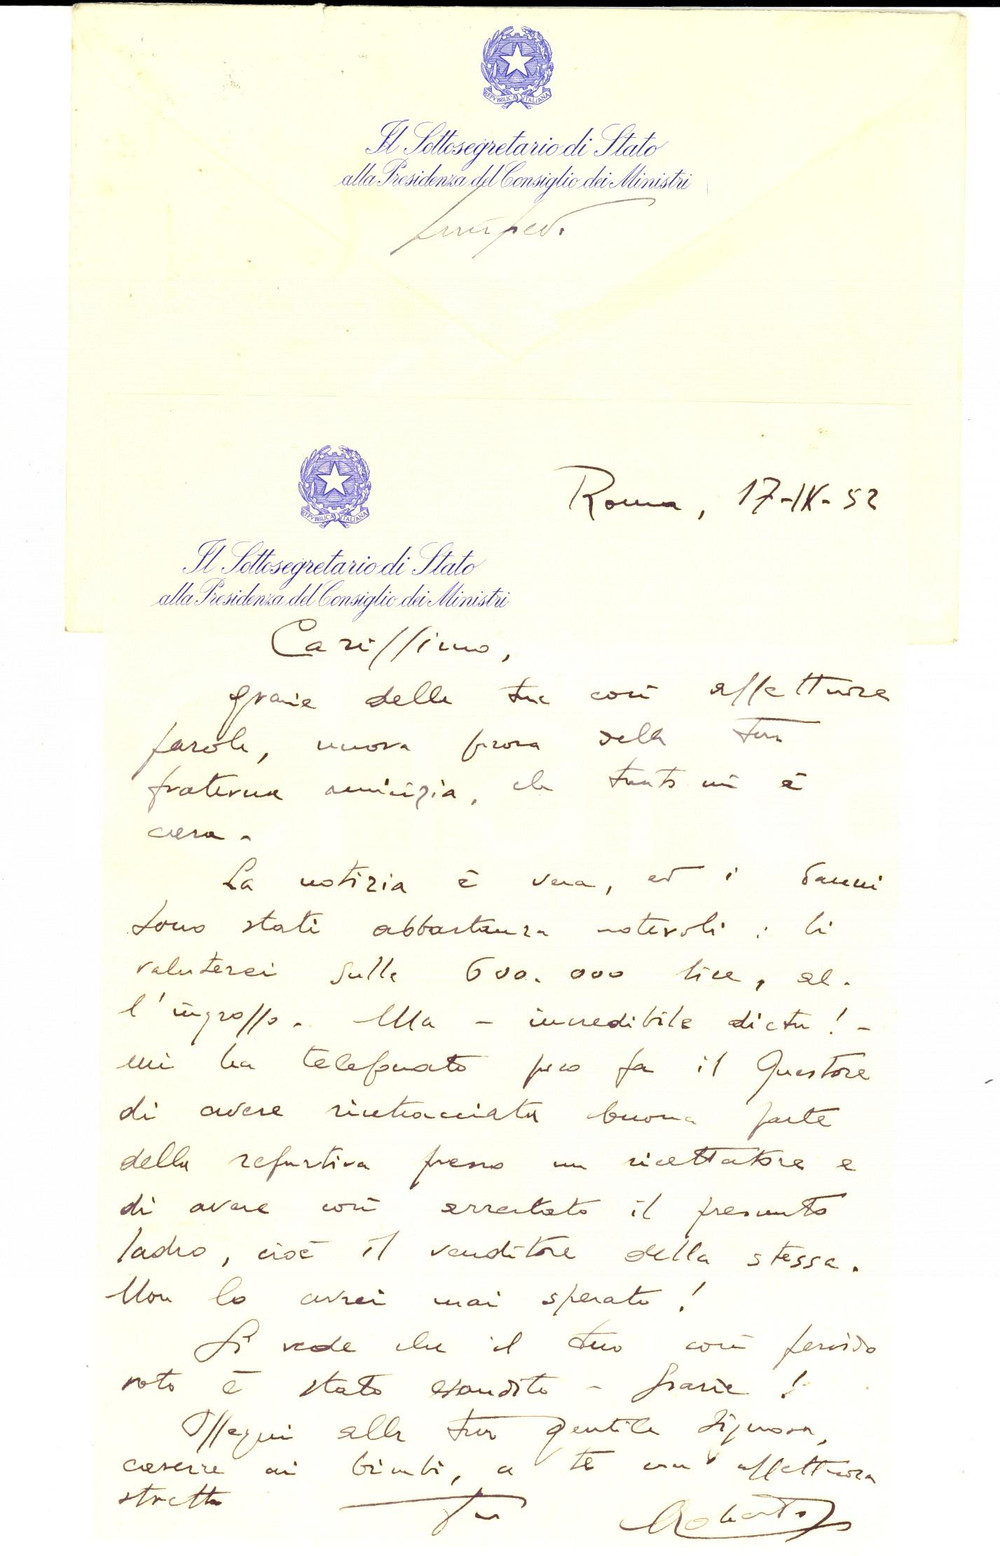 REPVBBLICA ITALIANA
Il Sottosegretario di Stato
alla Presidenza del Consiglio dei Ministri
REPVBBLICA ITALIANA
Roma, 17-IX-52
Il Sottosegretario di Stato
alla Presidenza del Consiglio dei Ministri
Carissimo,
grazie delle tue così affettuose
parole, nuova prova della tua
fraterna amicizia, che tanto mi è
cara.
La notizia è vera, ed i danni
sono stati abbastanza notevoli: li
valuterei sulle 600.000 lire, al-
l'ingrosso. Ma - incredibile dictu! -
mi ha telefonato poco fa il Questore
di avere rintracciata buona parte
della refurtiva presso un ricettatore e
di avere così arrestato il presunto
ladro, cioè il venditore della stessa.
Non lo avrei mai sperato!
Si vede che il tuo così fervido
voto è stato esaudito - Grazie!
Ossequi alla tua gentile Signora,
carezze ai bimbi, a te una affettuosa
stretta
tuo Roberto